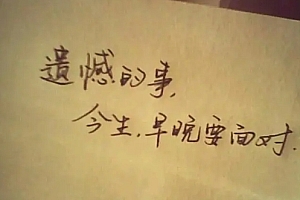 遗憾的事,
今生,早晚要面对.